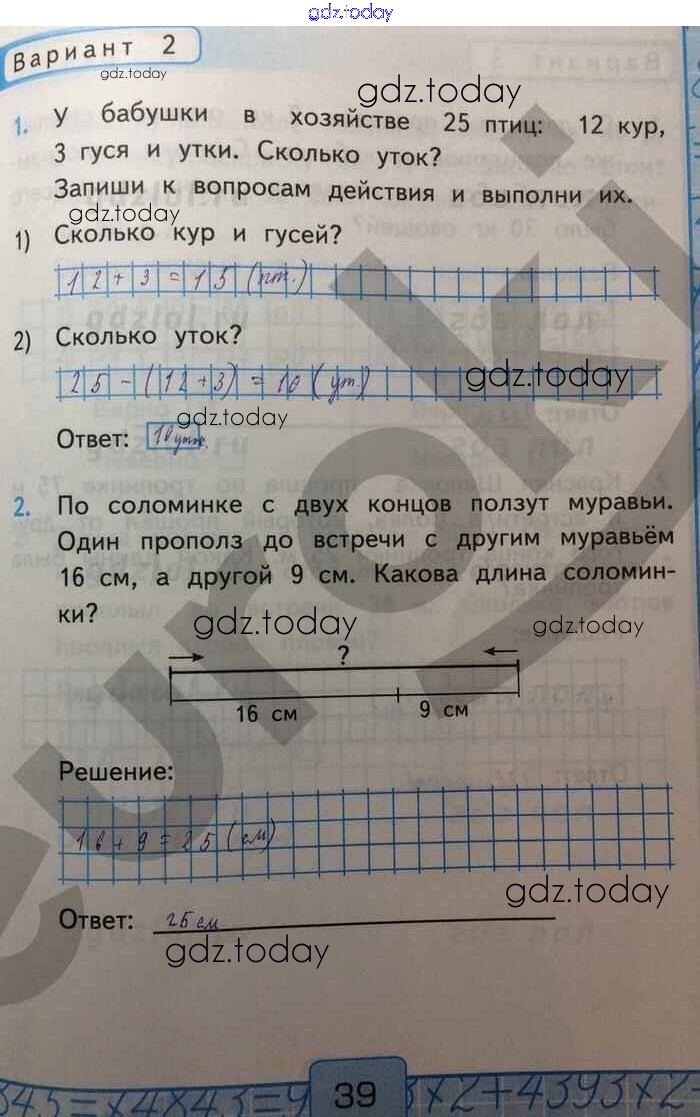 gdz.today
Вариант 2
gdz.today
gdz.today
1. У бабушки в хозяйстве 25 птиц: 12 кур,
3 гуся и утки. Сколько уток?
Запиши к вопросам действия и выполни их.
gdz.today
1) Сколько кур и гусей?
12+3=15(пт.)
2) Сколько уток?
25-(12+3)=10(ут.)
gdz.today
gdz.today
Ответ: 10 уток.
2. По соломинке с двух концов ползут муравьи.
Один прополз до встречи с другим муравьём
16 см, а другой 9 см. Какова длина соломин-
ки?
gdz.today
gdz.today
?
16 см 9 см
Решение:
16+9=25(см)
gdz.today
Ответ: 25 см
gdz.today
euroki
39